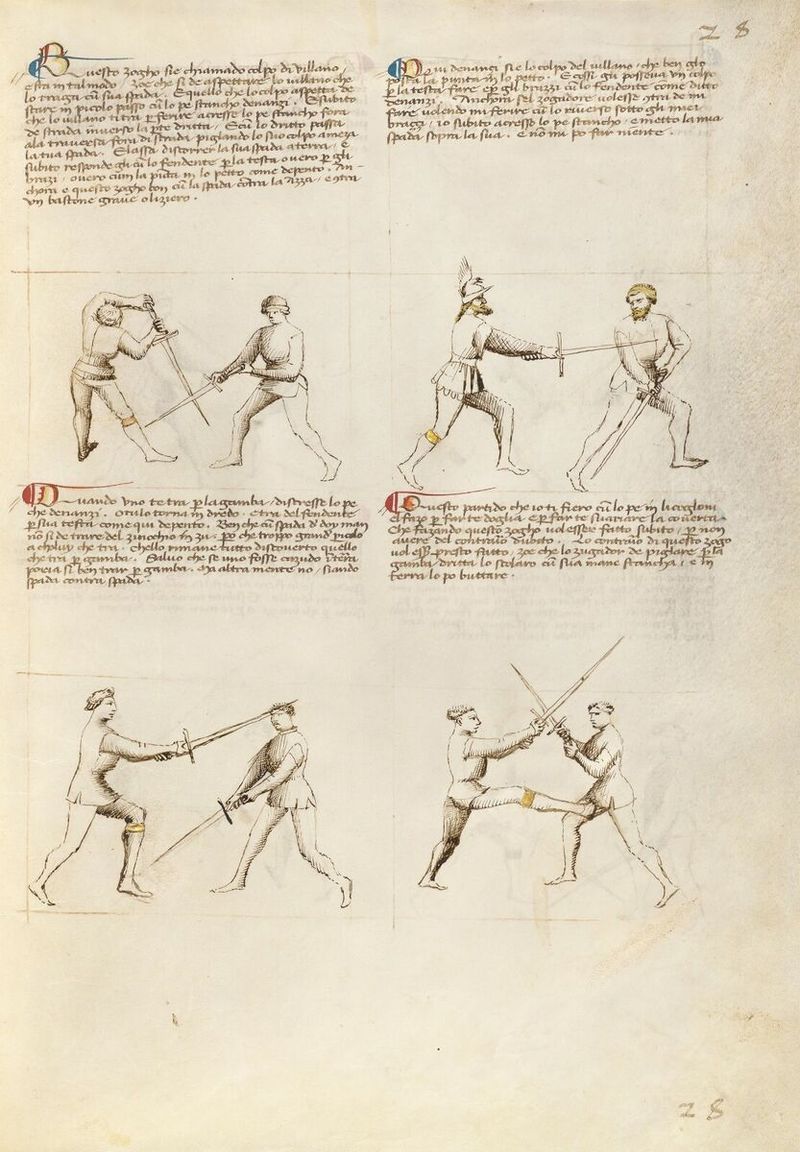 28
Questo zogho sie chiamado colpo di villano /
e sta in tal modo. Zoe che si de aspettare lo villano che
lo traga cū sua spada. E quello che lo colpo aspetta de
stare in picolo passo cū lo pe stancho denanzi. E subito
che lo villano ti tra p ferire acresse lo pe stancho fora
de strada inverso la pte dritta / E cū lo dritto passa
ala traversa fora di strada piglando lo suo colpo a meza
la tua spada. E lassa discorrer la sua spada a terra / e
subito responde gli cū lo fendente p la testa overo p gli
brazi / overo cum la pūta in lo petto come depento. An-
chora e questo zogho bon cū la spada cōtra la azza / e cōtra
un bastone grave o liziero.
Qui denanzi sie lo colpo del villano / che ben glo
posta la punta in lo petto. E cossi gli posseva un colpo
p la testa fare e p gli brazzi cū lo fendente come ditto
denanzi. Anchora sel zogadore volesse cōtra de mi
fare volendo mi ferire cū lo riverso sotto gli miei
brazzi / io subito acresse lo pe stancho e metto la mia
spada sopra la sua. e nō mi po far niente.
Quando uno te tra p la gamba / discresse lo pe
che denanzi. o tu lo torna in dredo. E tra del fendente
p sua testa come qui depento. Ben che cū spada d' doy man
nō si de trare del zinochio in zu. pō che troppo grand' picolo
a chului che tra. Chello rimane tutto discoverto quello
che tra p gamba. Salvo che se uno fosse cazudo ī terra
poria si ben trar p gamba. Ma altra mente no / siando
spada contra spada.
Questo partido che io ti fiero cū lo pe in li cogloni
el fazo p far te doglia e p far te svariare la coverta.
Che fazando questo zogho vol essere fatto subito / p non
avere del contrario dubito. Lo cōtrario di questo zogo
vol ess' presto fatto / zoe che lo zugador de piglare p la
gamba dritta lo scolaro cū sua mane stancha / e in
terra lo po buttare.
28